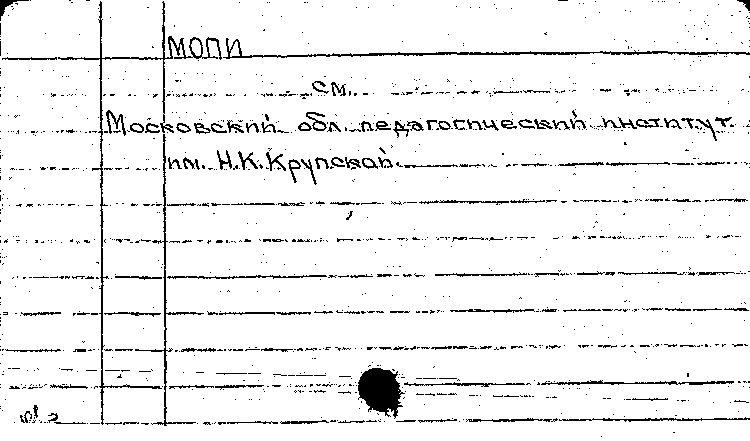 МОПИ
см.
Московский обл. педагогический институт.
им. Н.К.Крупской.